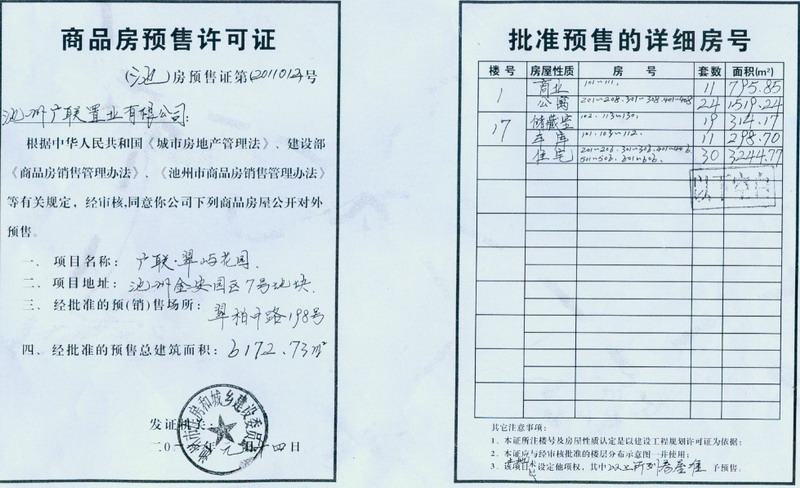 商品房预售许可证
(池)房预售证第(2011012)号
池州广联置业有限公司:
根据中华人民共和国《城市房地产管理法》、建设部
《商品房销售管理办法》、《池州市商品房销售管理办法》
等有关规定，经审核,同意你公司下列商品房屋公开对外
预售。
一、项目名称: 广联·翠屿花园.
二、项目地址: 池州金安园区7号地块.
三、经批准的预(销)售场所:
翠柏中路198号
四、经批准的预售总建筑面积: 6172.73㎡
发证机关:
批准预售的详细房号
楼号 房屋性质 房号 套数 面积(m²)
1 商业 101-111. 11 795.85
公寓 201-208.301-308.401-408 24 1519.24
17 储藏室 102.113-130. 19 314.17
车库 101.103-112. 11 298.70
住宅 201-206.301-306.401-406 30 3244.77
501-506.601-606.
以下空白
其它注意事项:
1、本证所注楼号及房屋性质认定是以建设工程规划许可证为依据;
2、本证应与经审核批准的楼层分布示意图一并使用;
3、该项目未设定他项权，其中以上所列为基准 予预售。